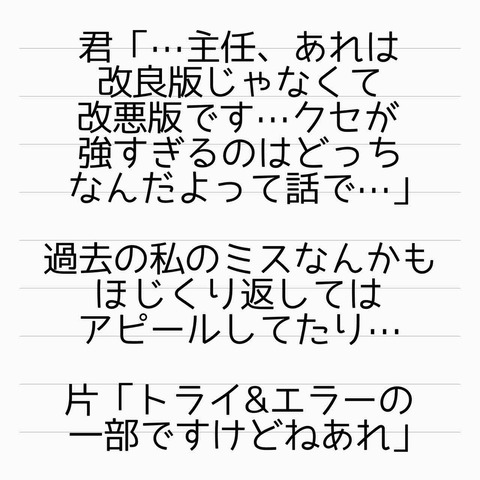 君「…主任、あれは
改良版じゃなくて
改悪版です…クセが
強すぎるのはどっち
なんだよって話で…」
過去の私のミスなんかも
ほじくり返しては
アピールしてたり…
片「トライ&エラーの
一部ですけどねあれ」